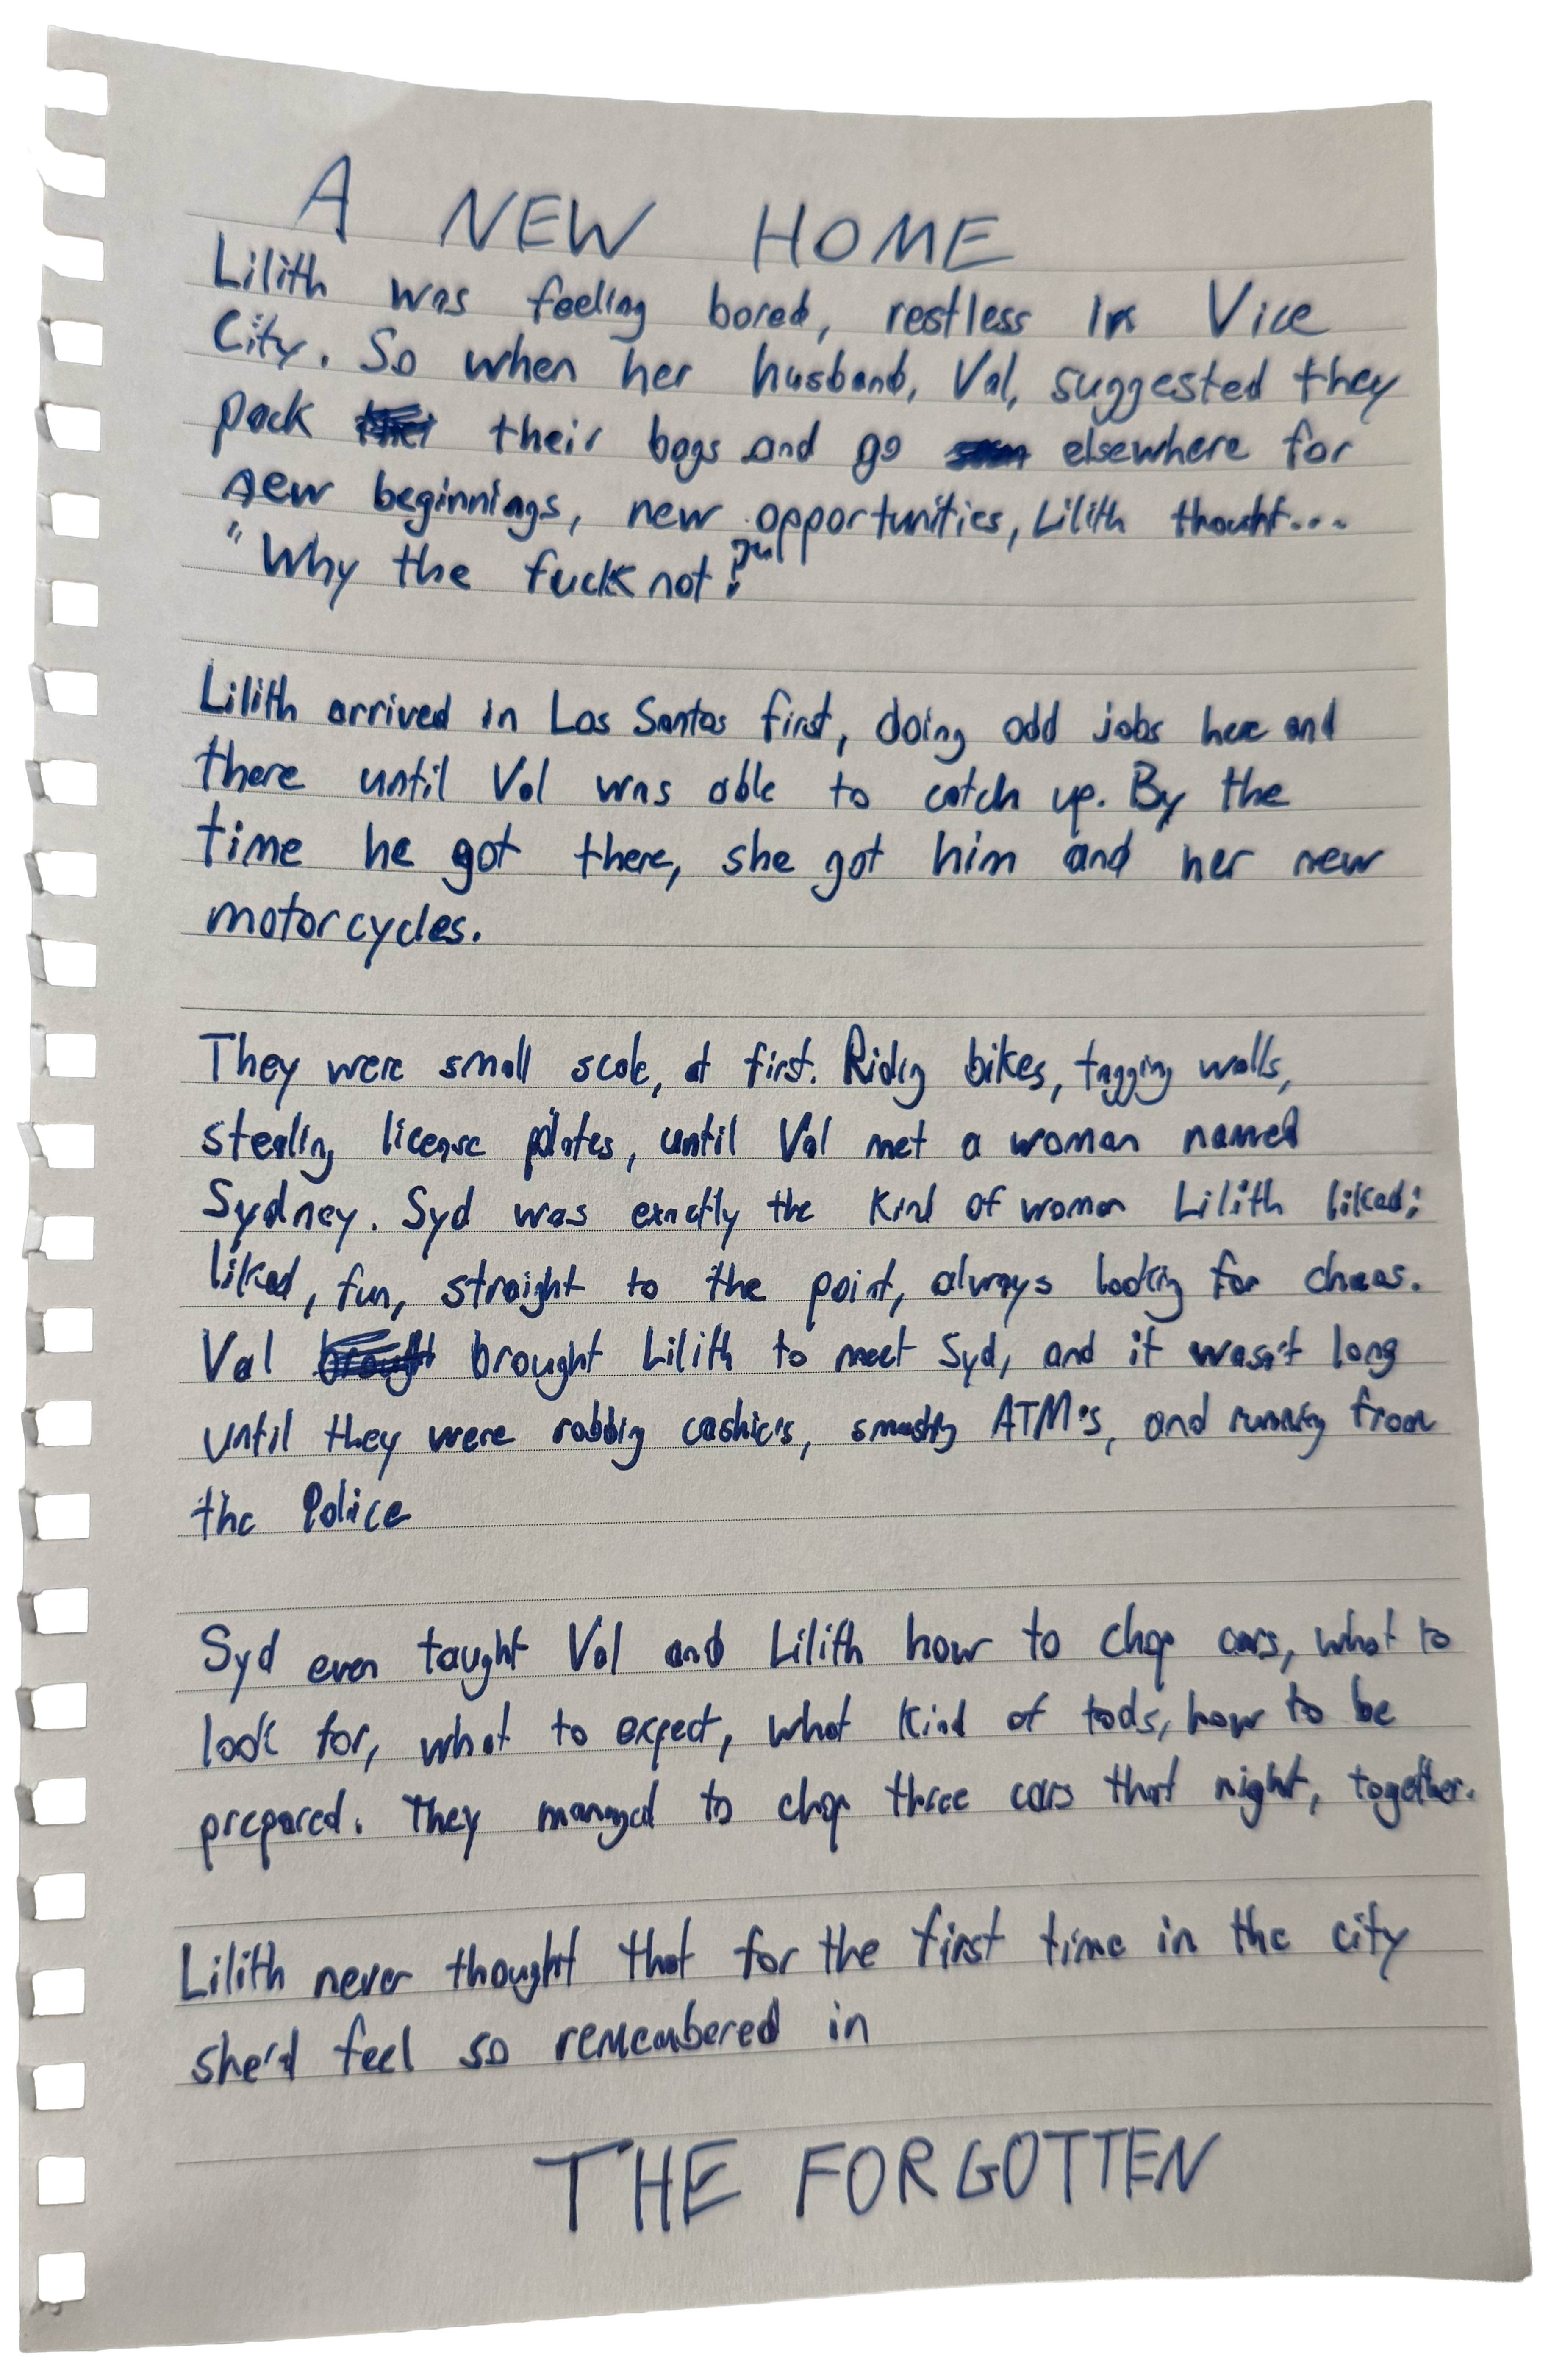 A NEW HOME
Lilith was feeling bored, restless in Vice
City. So when her husband, Val, suggested they
pack their bags and go elsewhere for
new beginnings, new opportunities, Lilith thought...
"Why the fuck not?"
Lilith arrived in Los Santos first, doing odd jobs here and
there until Val was able to catch up. By the
time he got there, she got him and her new
motorcycles.
They were small scale, at first. Riding bikes, tagging walls,
stealing license plates, until Val met a woman named
Sydney. Syd was exactly the kind of woman Lilith liked;
liked, fun, straight to the point, always looking for chaos.
Val brought Lilith to meet Syd, and it wasn't long
until they were robbing cashier's, smashing ATM's, and running from
the Police
Syd even taught Val and Lilith how to chop cars, what to
look for, what to expect, what kind of tools, how to be
prepared. They managed to chop three cars that night, together.
Lilith never thought that for the first time in the city
she'd feel so remembered in
THE FORGOTTEN